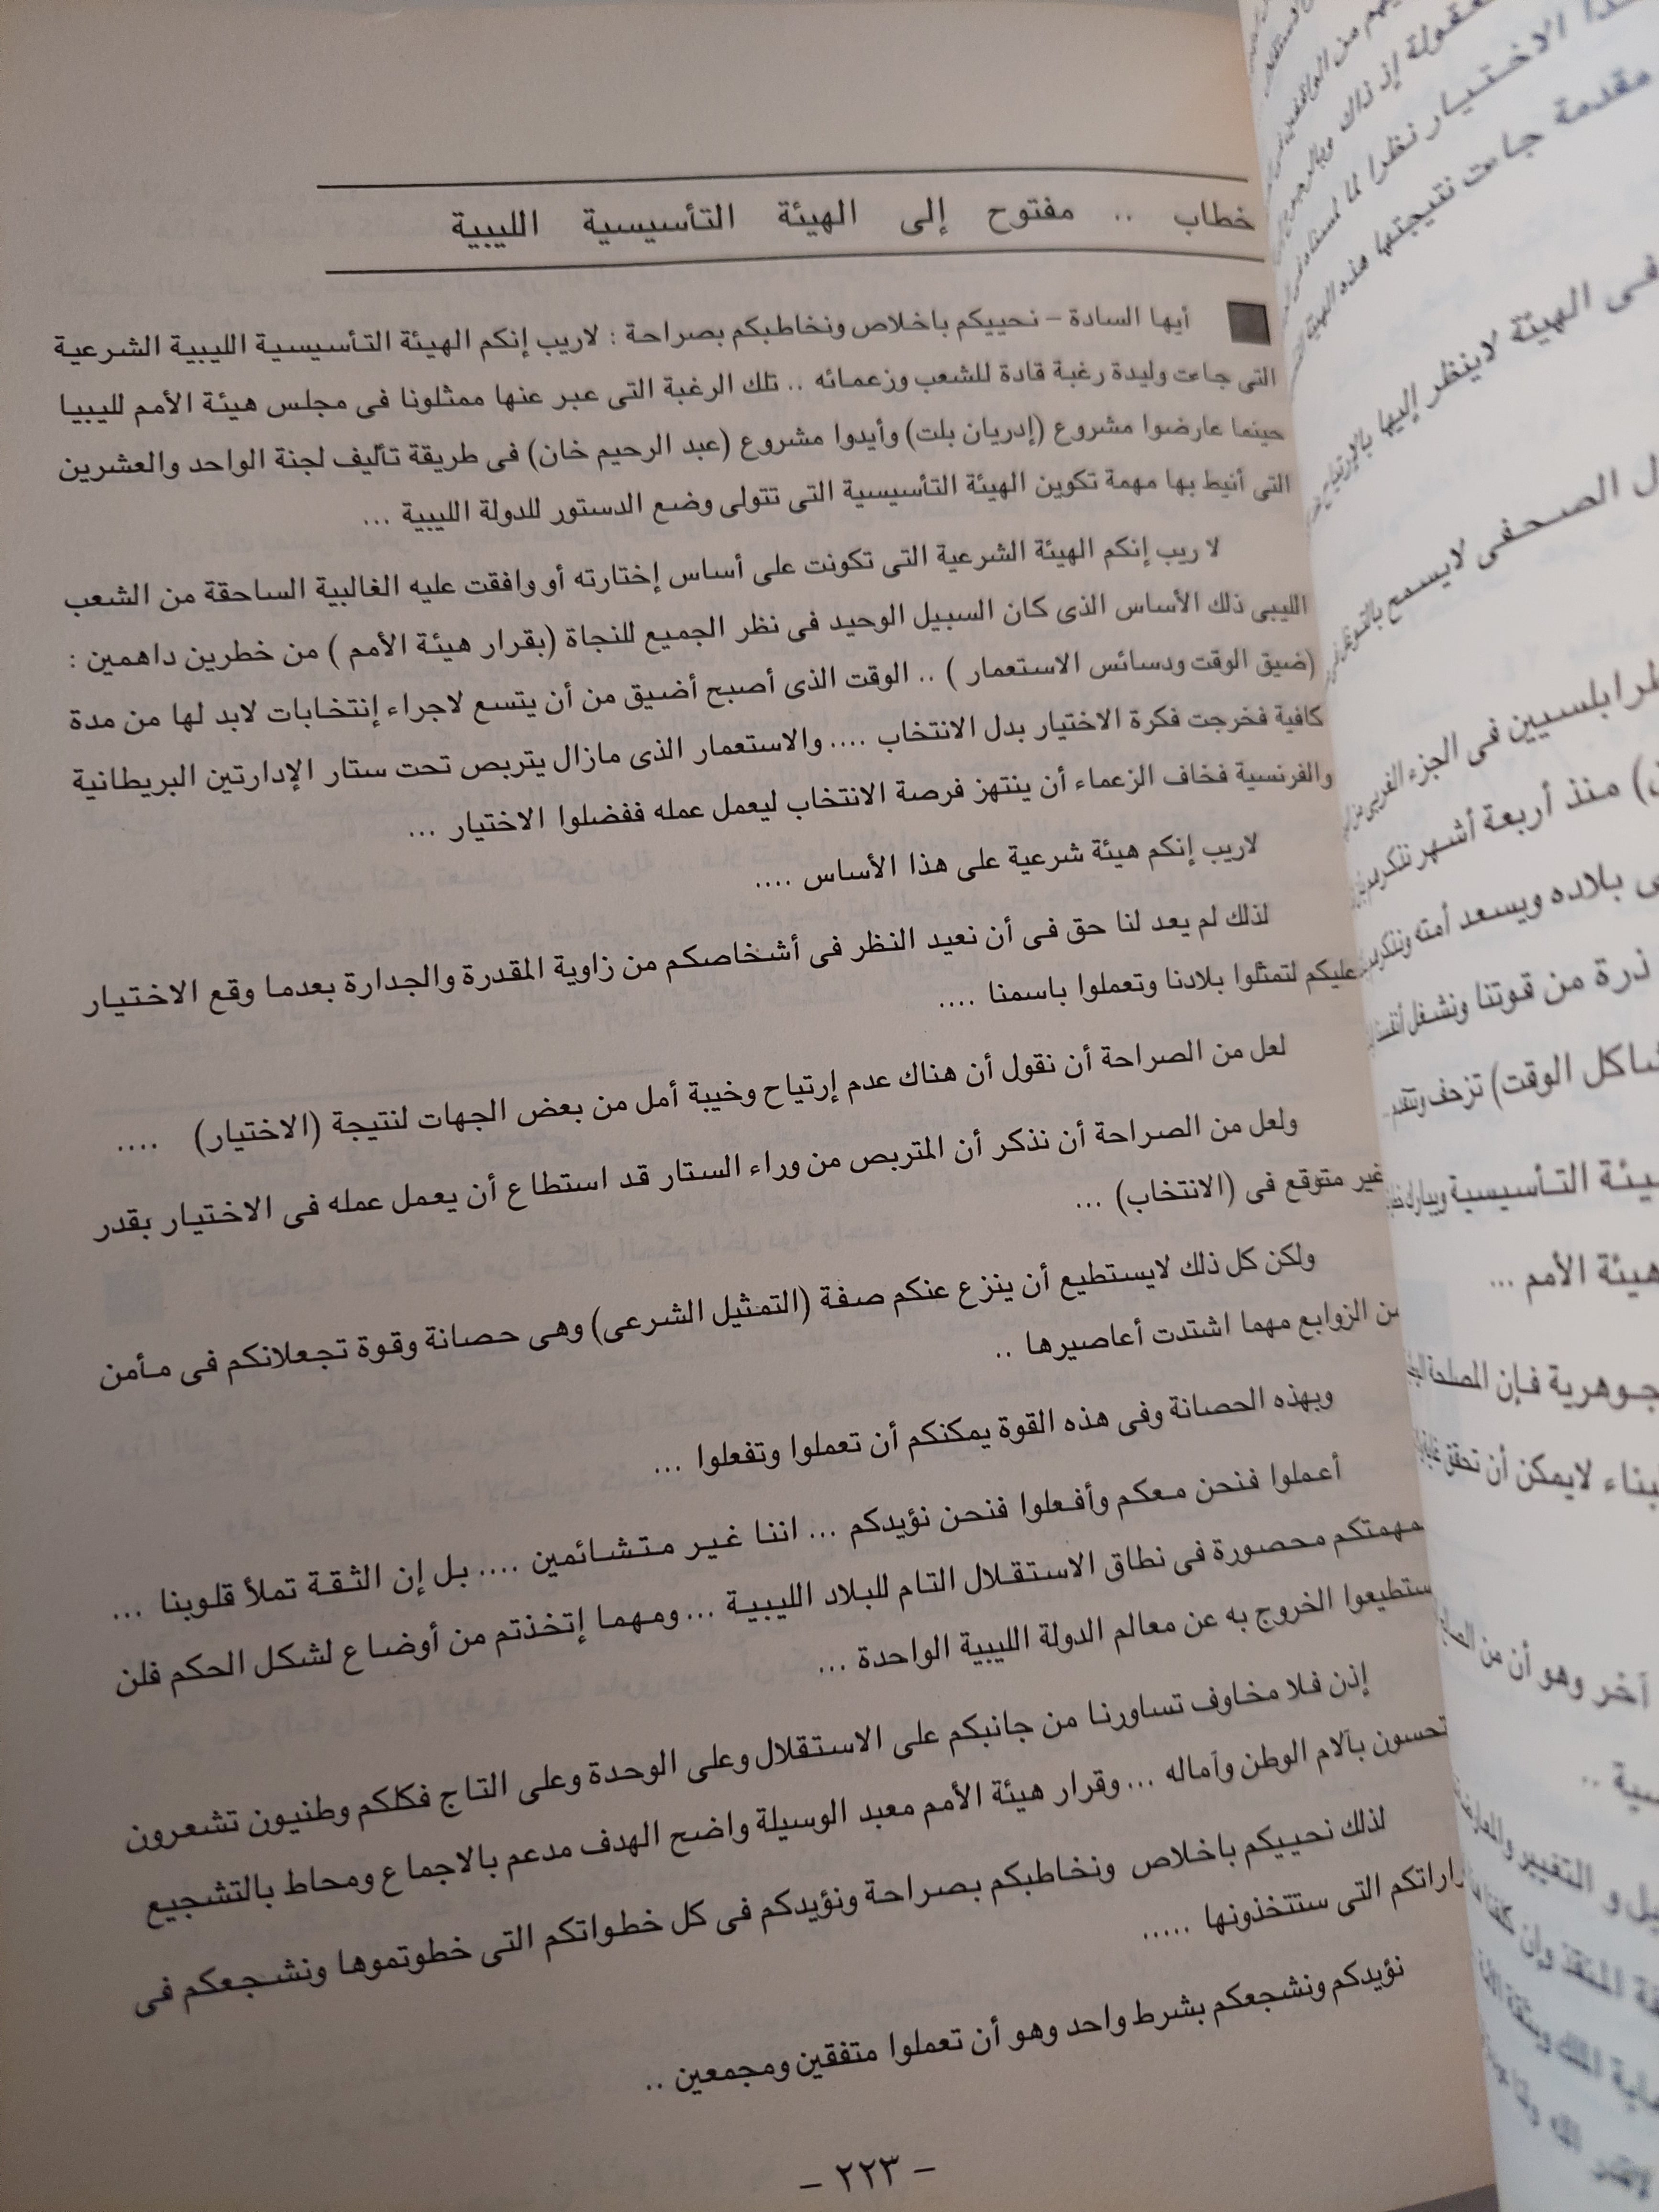 خطاب .. مفتوح إلى الهيئة التأسيسية الليبية
أيها السادة – نحييكم باخلاص ونخاطبكم بصراحة : لاريب إنكم الهيئة التأسيسية الليبية الشرعية
التى جاءت وليدة رغبة قادة للشعب وزعمائه .. تلك الرغبة التى عبر عنها ممثلونا فى مجلس هيئة الأمم لليبيا
حينما عارضوا مشروع (إدريان بلت) وأيدوا مشروع (عبد الرحيم خان) فى طريقة تأليف لجنة الواحد والعشرين
التى أنيط بها مهمة تكوين الهيئة التأسيسية التى تتولى وضع الدستور للدولة الليبية ...
لا ريب إنكم الهيئة الشرعية التى تكونت على أساس إختارته أو وافقت عليه الغالبية الساحقة من الشعب
الليبى ذلك الأساس الذى كان السبيل الوحيد فى نظر الجميع للنجاة (بقرار هيئة الأمم ) من خطرين داهمين :
(ضيق الوقت ودسائس الاستعمار ) .. الوقت الذى أصبح أضيق من أن يتسع لاجراء إنتخابات لابد لها من مدة
كافية فخرجت فكرة الاختيار بدل الانتخاب .... والاستعمار الذى مازال يتربص تحت ستار الإدارتين البريطانية
والفرنسية فخاف الزعماء أن ينتهز فرصة الانتخاب ليعمل عمله ففضلوا الاختيار ...
لاريب إنكم هيئة شرعية على هذا الأساس ....
لذلك لم يعد لنا حق فى أن نعيد النظر فى أشخاصكم من زاوية المقدرة والجدارة بعدما وقع الاختيار
عليكم لتمثلوا بلادنا وتعملوا باسمنا ....
لعل من الصراحة أن نقول أن هناك عدم إرتياح وخيبة أمل من بعض الجهات لنتيجة (الاختيار) ....
ولعل من الصراحة أن نذكر أن المتربص من وراء الستار قد استطاع أن يعمل عمله فى الاختيار بقدر
غير متوقع فى (الانتخاب) ...
ولكن كل ذلك لايستطيع أن ينزع عنكم صفة (التمثيل الشرعى) وهى حصانة وقوة تجعلانكم فى مأمن
من الزوابع مهما اشتدت أعاصيرها ..
وبهذه الحصانة وفى هذه القوة يمكنكم أن تعملوا وتفعلوا ...
أعملوا فنحن معكم وأفعلوا فنحن نؤيدكم ... اننا غير متشائمين .... بل إن الثقة تملأ قلوبنا ...
مهمتكم محصورة فى نطاق الاستقلال التام للبلاد الليبية ... ومهما إتخذتم من أوضاع لشكل الحكم فلن
ستطيعوا الخروج به عن معالم الدولة الليبية الواحدة ...
إذن فلا مخاوف تساورنا من جانبكم على الاستقلال وعلى الوحدة وعلى التاج فكلكم وطنيون تشعرون
تحسون بآلام الوطن وآماله ... وقرار هيئة الأمم معبد الوسيلة واضح الهدف مدعم بالاجماع ومحاط بالتشجيع
لذلك نحييكم باخلاص ونخاطبكم بصراحة ونؤيدكم فى كل خطواتكم التى خطوتموها ونشجعكم فى
راراتكم التى ستتخذونها .....
نؤيدكم ونشجعكم بشرط واحد وهو أن تعملوا متفقين ومجمعين ..
– ٢٢٣ –
الاختيار نظرا لما
مقدمة جاءت نتيجتها هذه الهيئة
فى الهيئة لاينظر إليها
الصحفى لايسمح
طرابلسيين فى الجزء الغربى من
منذ أربعة أشهر
بلاده ويسعد أمته
ذرة من قوتنا ونشغل
شاكل الوقت) تزحف
يئة التأسيسية
هيئة الأمم ...
جوهرية فإن المصلحة
بناء لايمكن أن تحقق
آخر وهو أن من
سية ..
يل و التغيير